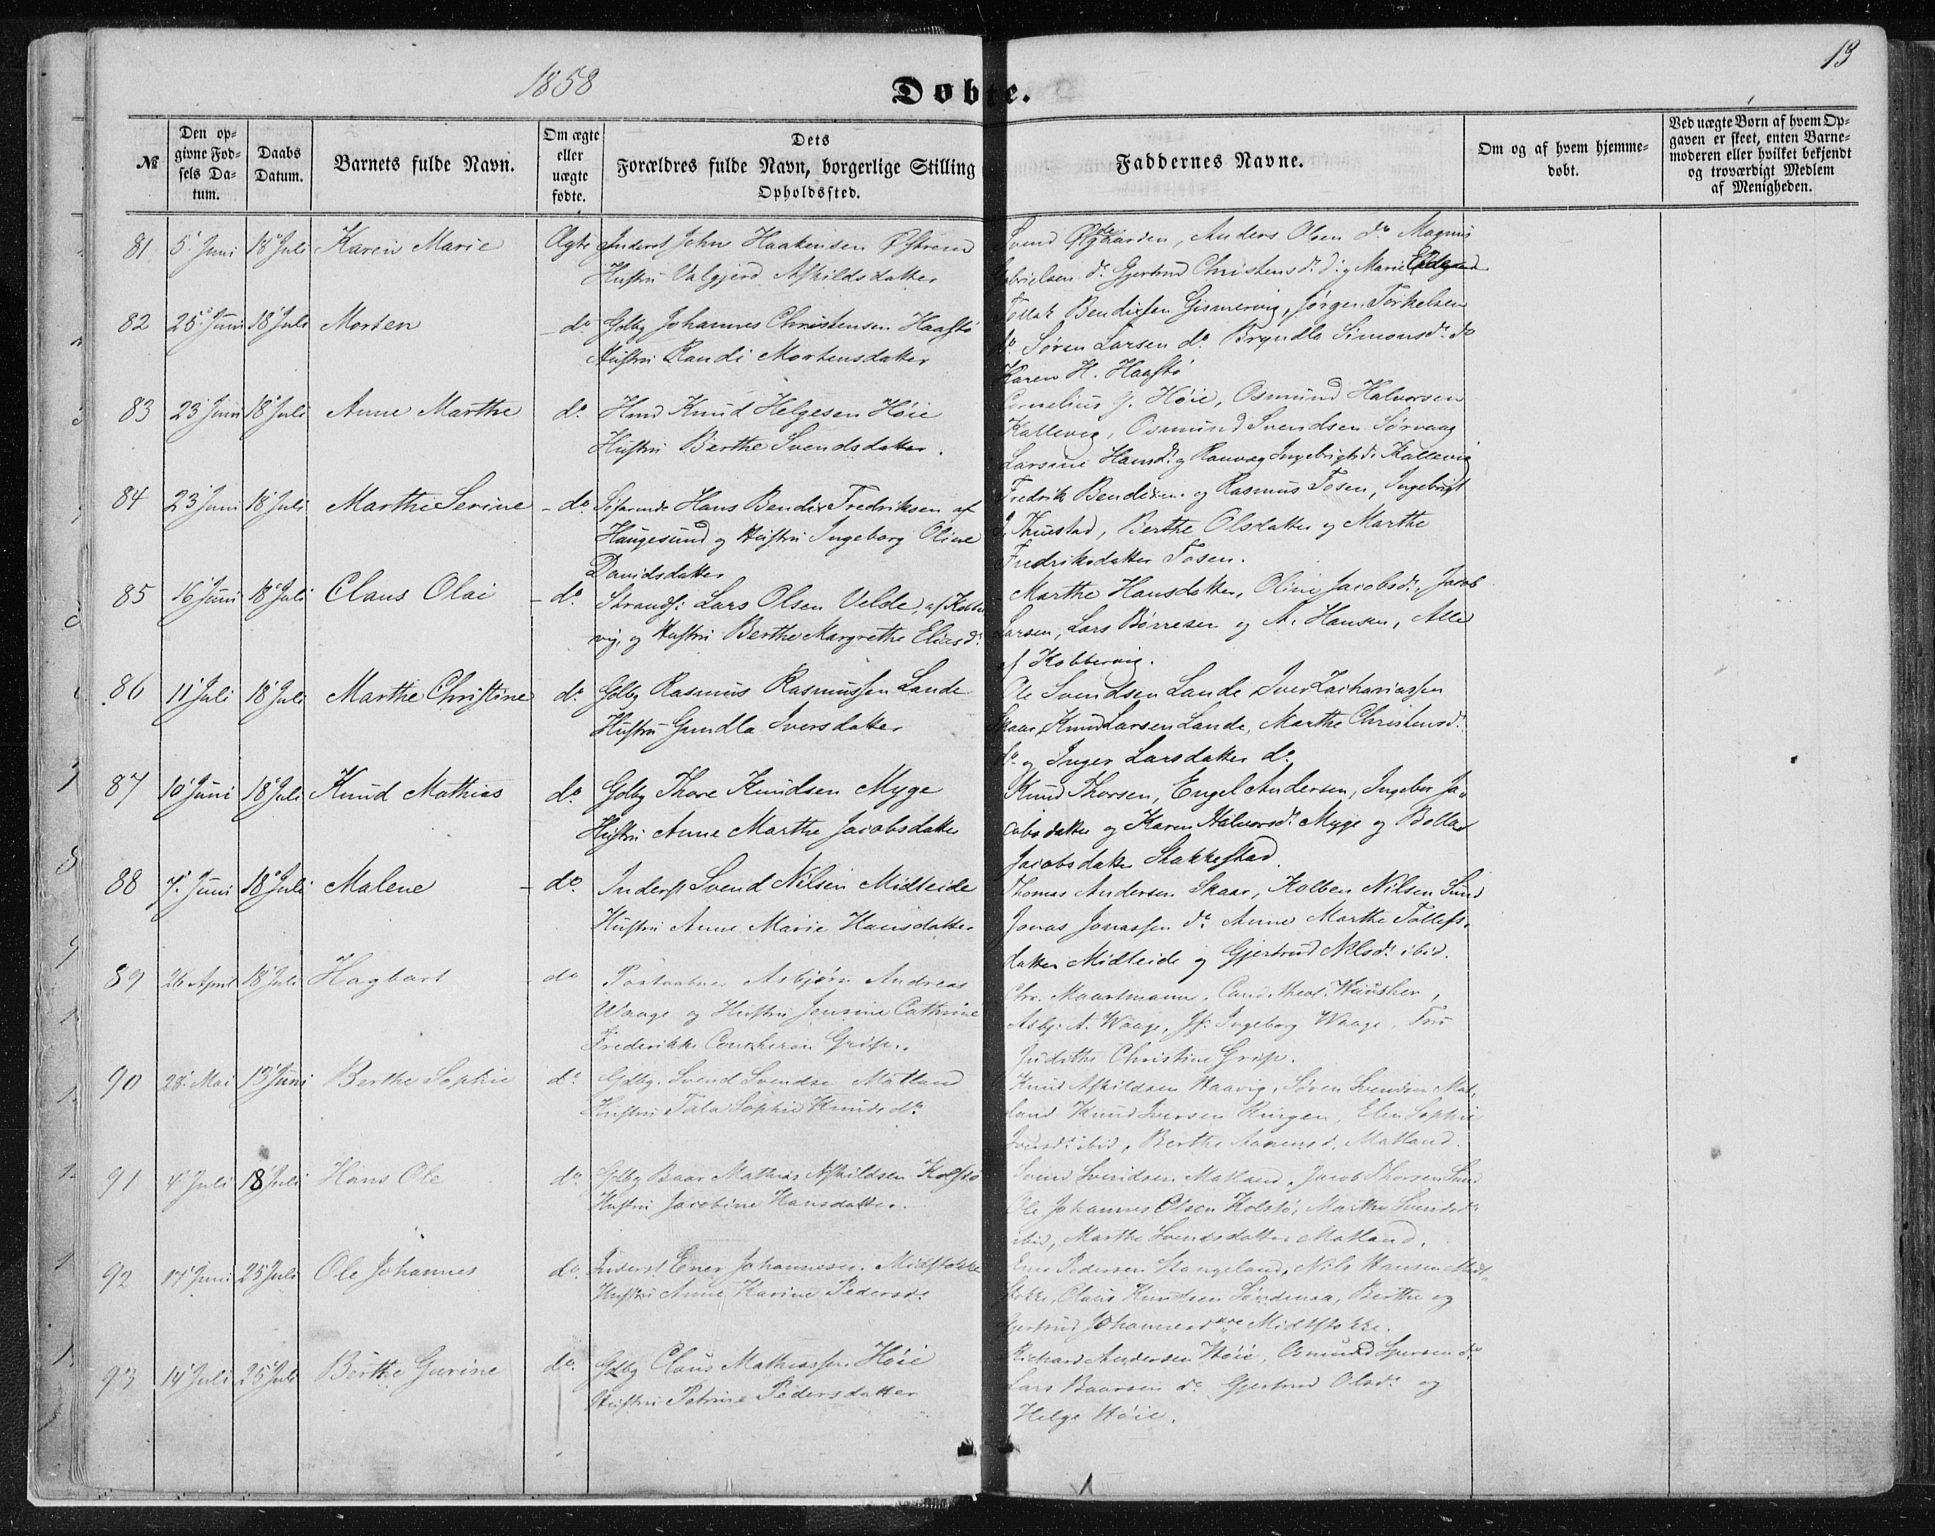 1858
Døbte.
13
№
Den op-
givne Fød-
sels Da-
tum.
Daabs
Datum.
Barnets fulde Navn.
Om ægte
eller
uægte
fødte.
Dets
Forældres fulde Navn, borgerlige Stilling
Opholdssted.
Faddernes Navne.
Om og af hvem hjemme-
døbt.
Ved uægte Børn af hvem Op-
gaven er skeet, enten Barne-
moderen eller hvilket bekjendt
og troværdigt Medlem
af Menigheden.
81 5 Juni 18 Juli Karen Marie Ægte Inderst John Haakensen Østrem
Hustru Valgjerd Askildsdatter
Svend Øde­gaarden, Anders Olsen do Magnus
Gabrielsen do Gjertrud Christensd. do og Marie
82 25 Juni 18 Juli Morten do Gdby Johannes Christensen Haastø
Hustru Randi Mortensdatter
Tollak Bendixsen Gismervig, Jørgen Torkelsen
do Søren Larsen do Bryndla Simonsd. do
Karen H. Haastø
83 23 Juni 18 Juli Anne Marthe do Knud Helgesen Høie
Hustru Berthe Svendsdatter.
Cornelius J. Høie, Osmund Halvorsen
Kallevig, Osmund Svendsen Sørvaag
Larsine Hansd. og Ranvag Ingebrigtsd. Kallevig
84 23 Juni 18 Juli Marthe Serine do Søfarende Hans Bendix Fredriksen af
Haugesund og Hustru Ingeborg Oline
Davidsdatter
Fredrik Bendixen og Rasmus Tosen, Ingebrigt
Berthe Olsdatter og Marthe
Fredriksdatter Tosen.
85 16 Juni 18 Juli Claus Olai do Strands. Lars Olsen Velde, af Kobber
vig, og Hustru Berthe Margrethe Eliasd.
Marthe Hansdatter, Oline Jacobsd., Jacob
Larsen, Lars Børresen og A. Hansen, Alle
af Kobbervig.
86 11 Juli 18 Juli Marthe Christine do Gdby Rasmus Rasmussen Lande
Hustru Gundla Iversdatter
Ole Svendsen Lande, Iver Zachariassen
Skaar, Knud Larsen Lande, Marthe Christensd.
do og Inger Larsdatter do
87 10 Juni 18 Juli Knud Mathias do Gdby Thore Knudsen Myge
Hustru Anne Marthe Jacobsdatter
Knud Thorsen, Engel Andersen, Ingebor Ja-
cobsdatter og Karen Halvorsd. Myge og Bolla
Jacobsdatter Stakkestad.
88 7 Juni 18 Juli Malene do Inderst Svend Nilsen Midteide
Hustru Anne Marie Hansdatter
Thomas Andersen Skaar, Kolben Nilsen Sund
Jonas Jonassen do Anne Marthe Tollefs-
datter Midteide og Gjertrud Nilsd. ibid.
89 26 April 18 Juli Hagbart do Postaabner Asbjørn Andreas
Waage og Hustru Jensine Cathrine
Frederikke Coucheron Grip.
Chr. Maartmann, Cand. theol.
Asbj. A. Waage, Jf. Ingeborg Waage, Fru
Judithe Christine Grip.
90 28 Mai 13 Juni Berthe Sophie do Gdby. Svend Svendse Matland
Hustru Tala Sophie Knudsd.
Knud Askildsen Haavig, Søren Svendsen Mat-
land Knud Iversen Ringen, Elen Sophie
Iversd. ibid, Berthe Aanensd. Matland.
91 4 Juli 18 Juli Hans Ole do Gdby Baar Mathias Askildsen Kolstø
Hustru Jacobine Hansdatter.
Svend Svendsen Matland, Jacob Thorsen Sund
Ole Johannes Olsen Kolstø, Marthe Svendsd.
ibid, Marthe Svendsdatter Matland.
92 17 Juni 25 Juli Ole Johannes do Inderst Ener Johannesen Midtstokke
Hustru Anne Karine Pedersd.
Ener Pedersen Stangeland, Nils Hansen Midt-
stokke, Claus Knudsen Søndenaa, Berthe og
Gjertrud Johannesd. Midtstokke.
93 14 Juli 25 Juli Berthe Gurine do Gdby Claus Mathiassen Høie
Hustru Petrine Pedersdatter
Richard Andersen Høie, Osmund Iversen do
Lars Baarsen do Gjertrud Olsd. og
Helge Høie.